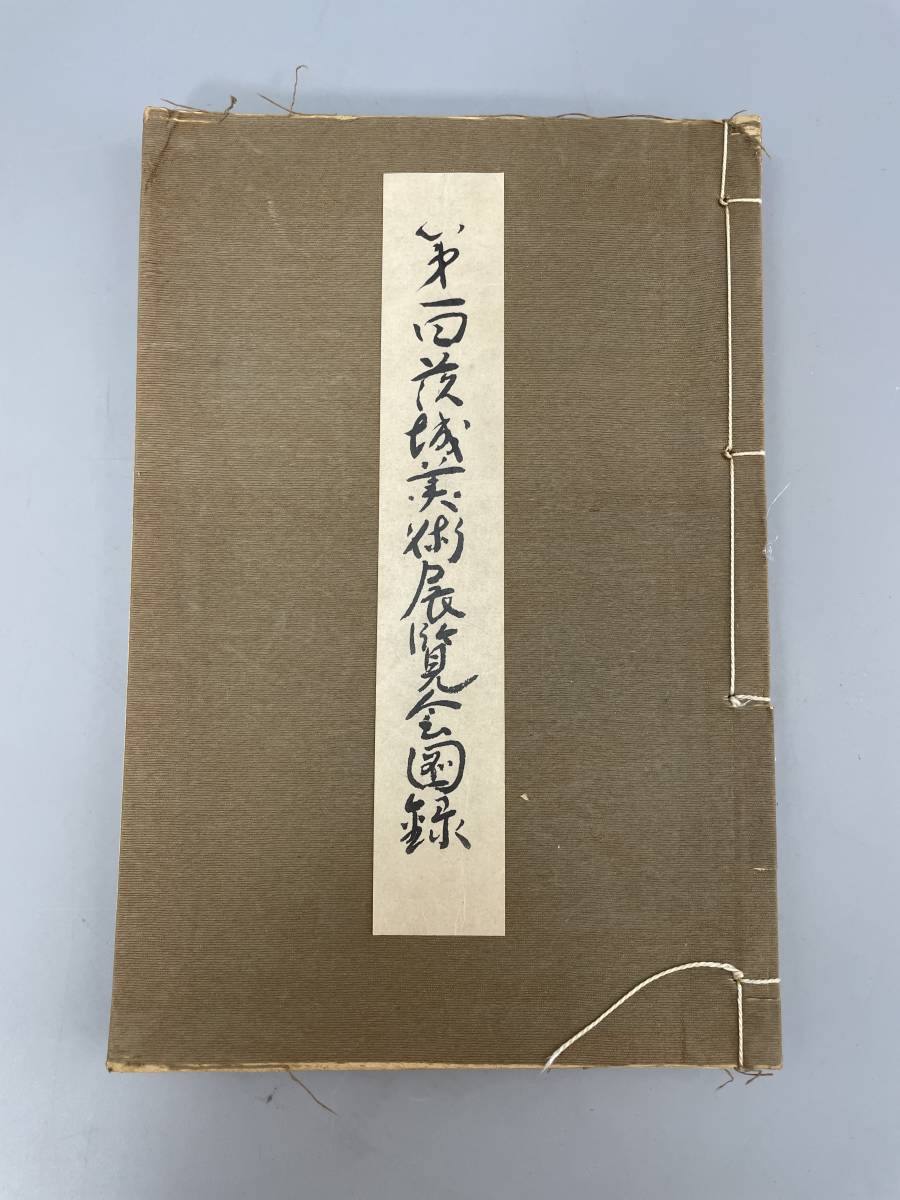 第一回茨城美術展覧会図録